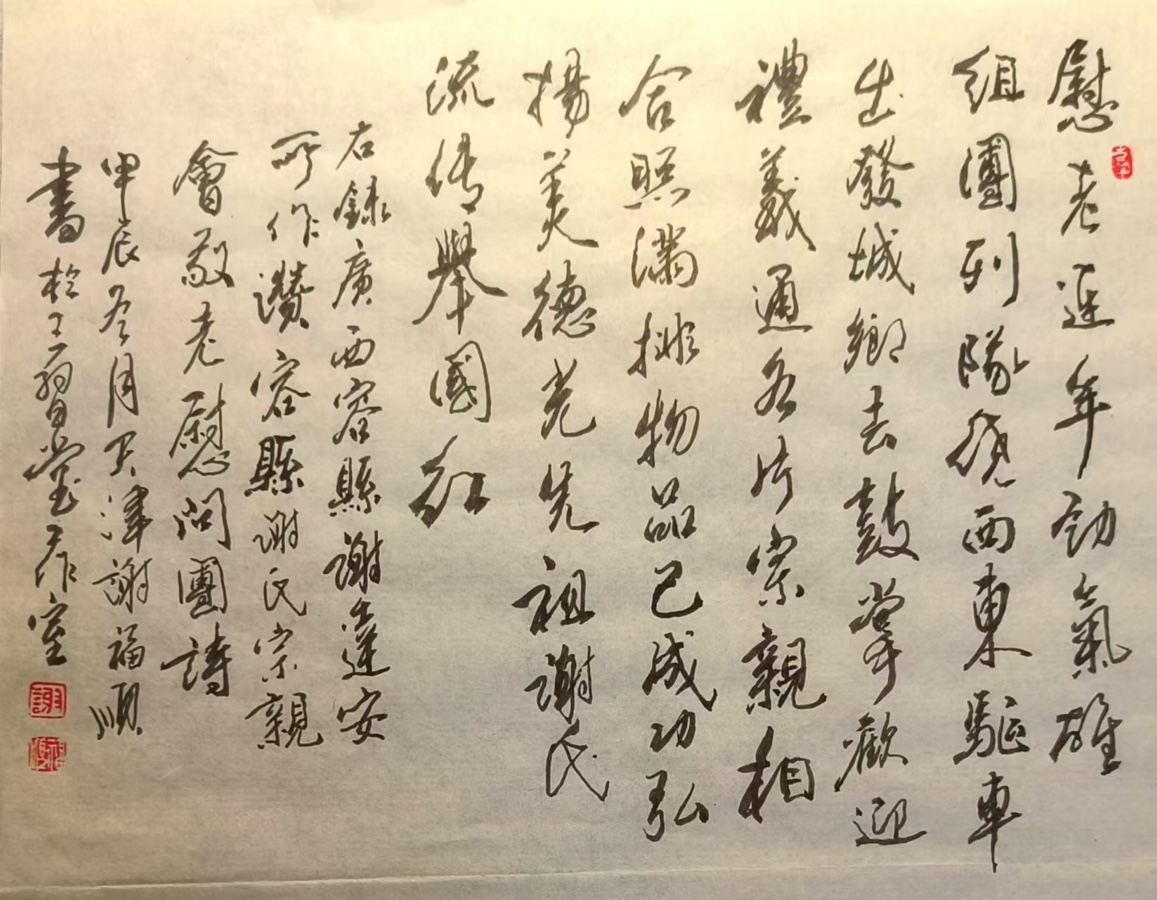 慰老連年勁氣雄
組團列隊繞西東驅車
出發城鄉去鼓掌歡迎
禮義通名片宗親相
合照滿排物品已成功弘
揚美德光先祖謝氏
流传舉國紅
右錄廣西容縣謝達安
所作讚容縣謝氏宗親
會敬老慰問團詩
甲辰冬月天津謝福順
書於三習堂工作室